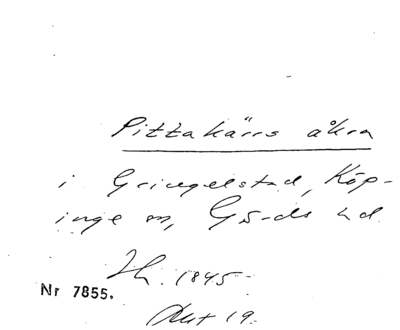 Pittakärrs åkra
i Gringelstad, Köp-
inge sn, Gärds hd.
Sk. 1845
Nr 7855.
Akt 19.